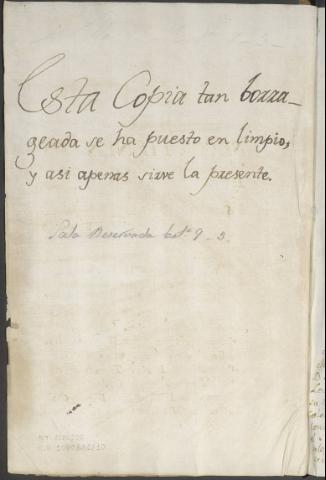 Esta Copia tan borra_
geada se ha puesto en limpio,
y asi apenas sirve la presente.
Sala Reservada